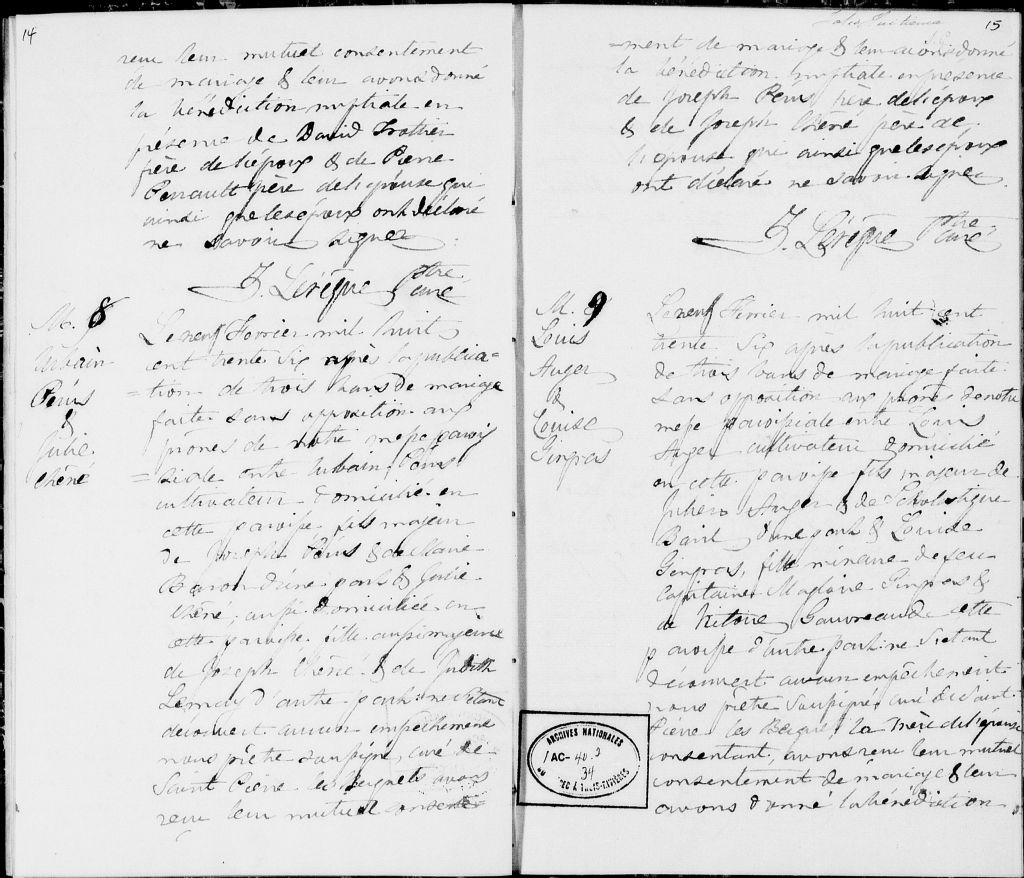 14
reçu leur mutuel consentement
de mariage & leur avons donné
la bénédiction nuptiale en
présence de David Trottier
père de l'époux & de Pierre
Perrault père de l'épouse qui
ainsi que les époux ont déclaré
ne savoir signer.
J. Lévêque Ptre
Curé
M. 8
Urbain
Pérus
&
Julie
Chéné
Le neuf Février mil huit
cent trente six après la publica=
=tion de trois bans de mariage
faite sans opposition aux
prônes de notre messe parois
=siale entre Urbain Pérus
cultivateur domicilié en
cette paroisse fils majeur
de Joseph Pérus & de Marie
Baron d'une part & Julie
Chéné, aussi domiciliée en
cette paroisse fille aussi majeure
de Joseph Chéné & de Judith
Lemay d'autre part: ne s'étant
découvert aucun empêchement
nous prêtre soussigné, curé de
Saint Pierre les Becquets avons
reçu leur mutuel consente
15
=ment de mariage & leur avons donné
la bénédiction nuptiale en présence
de Joseph Pérus père de l'époux
& de Joseph Chéné père de
l'épouse qui ainsi que les époux
ont déclaré ne savoir signer.
J. Lévêque Ptre
Curé
M. 9
Louis
Auger
&
Louise
Gingras
Le neuf Février mil huit cent
trente six après la publication
de trois bans de mariage faite
sans opposition aux prônes de notre
messe paroissiale entre Louis
Auger cultivateur domicilié
en cette paroisse fils majeur de
Julien Auger & de Scholastique
Baril d'une part & Louise
Gingras, fille mineure de feu
Capitaine Magloire Gingras &
de Victoire Gauvreau de cette
paroisse d'autre part: ne s'étant
découvert aucun empêchement
nous prêtre soussigné curé de Saint
Pierre les Becquets la mère de l'épouse
consentant, avons reçu leur mutuel
consentement de mariage & leur
avons donné la bénédiction
ARCHIVES NATIONALES
IAC- 40.3
34